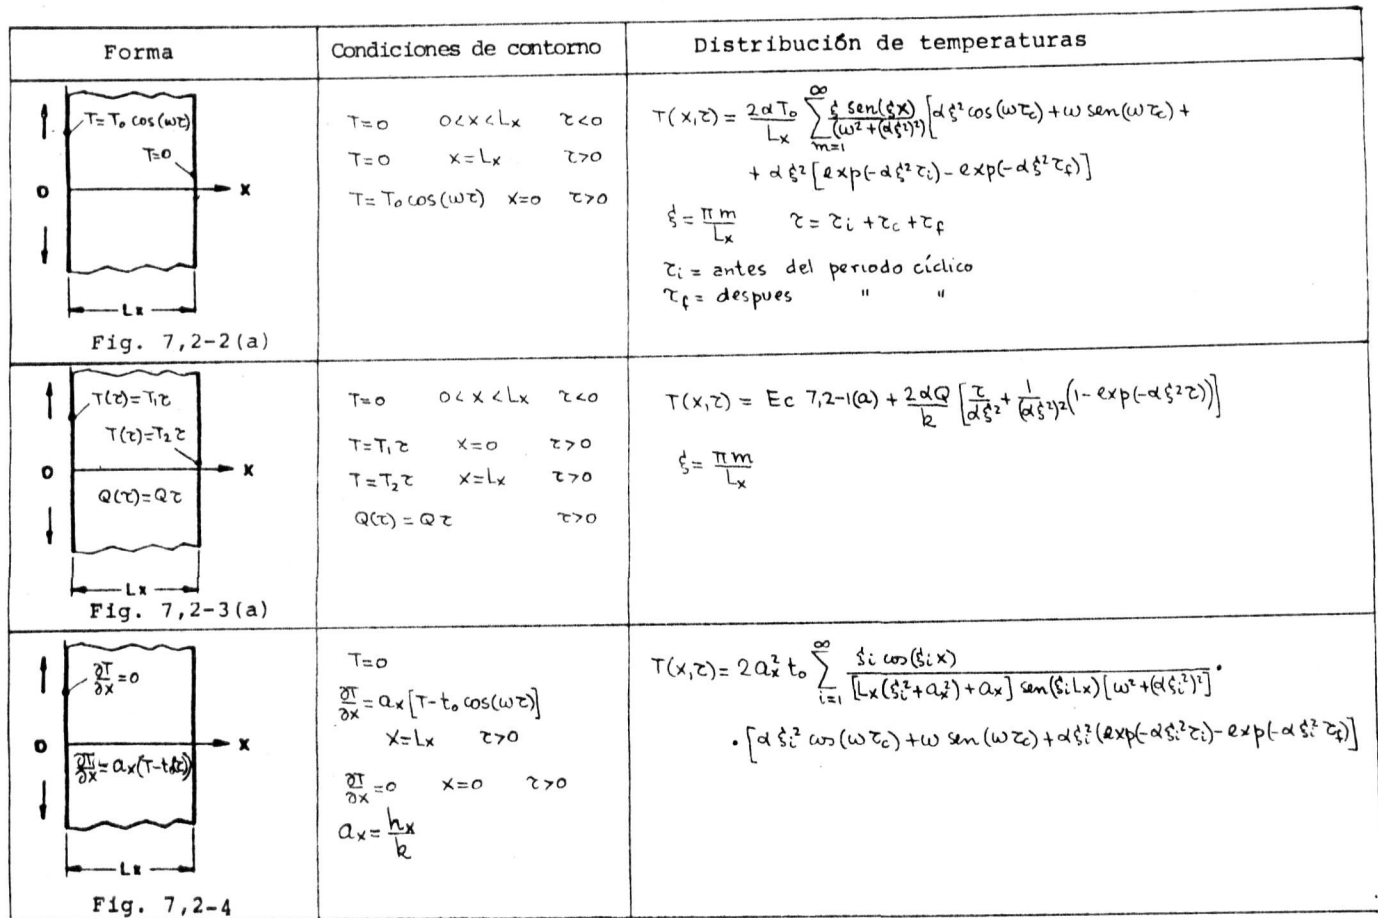 Forma
Condiciones de contorno
Distribución de temperaturas
T=T₀ cos(ωτ)
T=0
0
x
Lx
Fig. 7,2-2(a)
T=0 0<x<Lx τ<0
T=0 x=Lx τ>0
T=T₀ cos(ωτ) x=0 τ>0
T(x,τ) = 2αT₀/Lx ∑_{m=1}^{∞} ξ sen(ξx)/(ω²+(αξ²)²) [αξ² cos(ωτc) + ω sen(ωτc) +
+ αξ² [exp(-αξ²τi) - exp(-αξ²τf)]
ξ = πm/Lx τ = τi + τc + τf
τi = antes del periodo cíclico
τf = despues " "
T(τ)=T₁τ
T(τ)=T₂τ
0
x
Q(τ)=Qτ
Lx
Fig. 7,2-3(a)
T=0 0<x<Lx τ<0
T=T₁τ x=0 τ>0
T=T₂τ x=Lx τ>0
Q(τ) = Qτ τ>0
T(x,τ) = Ec 7,2-1(a) + 2αQ/k [τ/αξ² + 1/(αξ²)² (1-exp(-αξ²τ))]
ξ = πm/Lx
∂T/∂x=0
0
x
∂T/∂x=ax(T-t₀
Lx
Fig. 7,2-4
T=0
∂T/∂x = ax[T-t₀ cos(ωτ)]
x=Lx τ>0
∂T/∂x=0 x=0 τ>0
ax = hx/k
T(x,τ) = 2ax² t₀ ∑_{i=1}^{∞} ξi cos(ξix)/[Lx(ξi²+ax²)+ax] sen(ξiLx)[ω²+(αξi²)²] ·
· [αξi² cos(ωτc) + ω sen(ωτc) + αξi² (exp(-αξi²τi) - exp(-αξi²τf)]